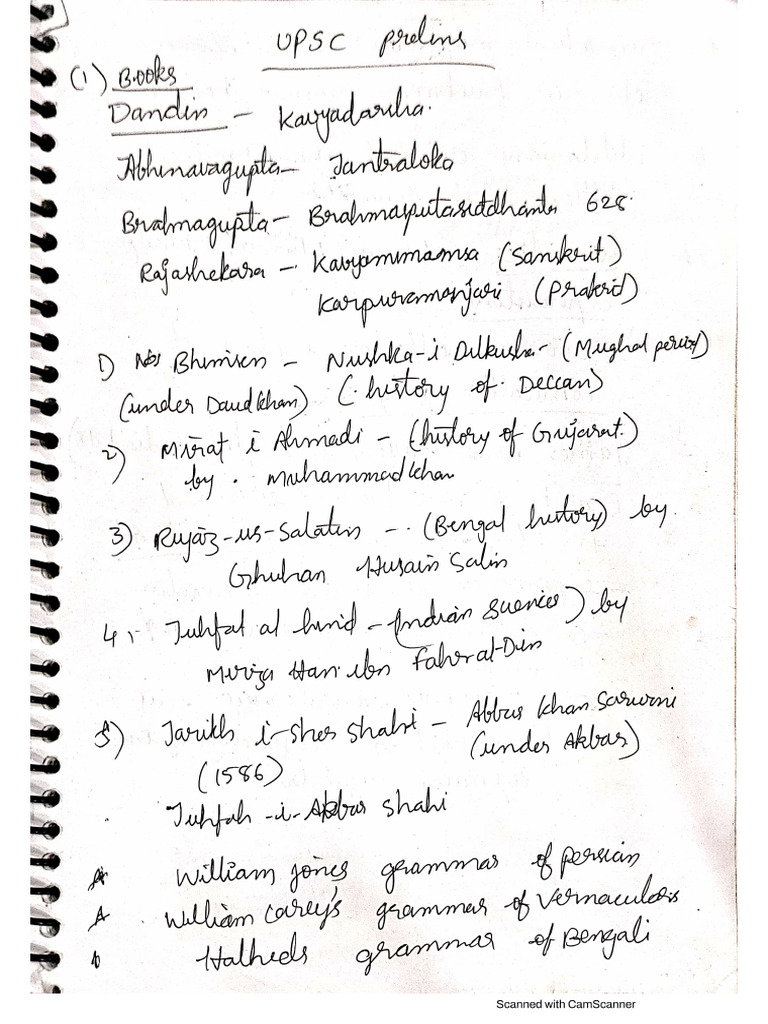 UPSC prelims
(1) Books
Dandin - Kavyadarsha.
Abhinavagupta - Tantraloka
Brahmagupta - Brahmasputasiddhanta 628.
Rajashekara - Kavyamimamsa (Sanskrit)
Karpuramanjari (Prakrid)
1) Bhimsen - Nushka-i Dilkusha - (Mughal period)
(under Daud khan) (history of Deccan)
2) Mirat i Ahmadi - (history of Gujarat.)
by. Muhammad khan
3) Riyaz-us-Salatin - (Bengal history) by.
Ghulam Husain Salim
4. Tuhfat al hind - (Indian Sciences) by
Mirza Han ibn Fahr al-Din
5) Tarikh i-Sher Shahi - Abbas Khan Sarwani
(1586) (under Akbar)
Tuhfah-i-Akbar Shahi
William Jones grammar of persian
William Carey's grammar of Vernaculars
Halheds grammar of Bengali
Scanned with CamScanner